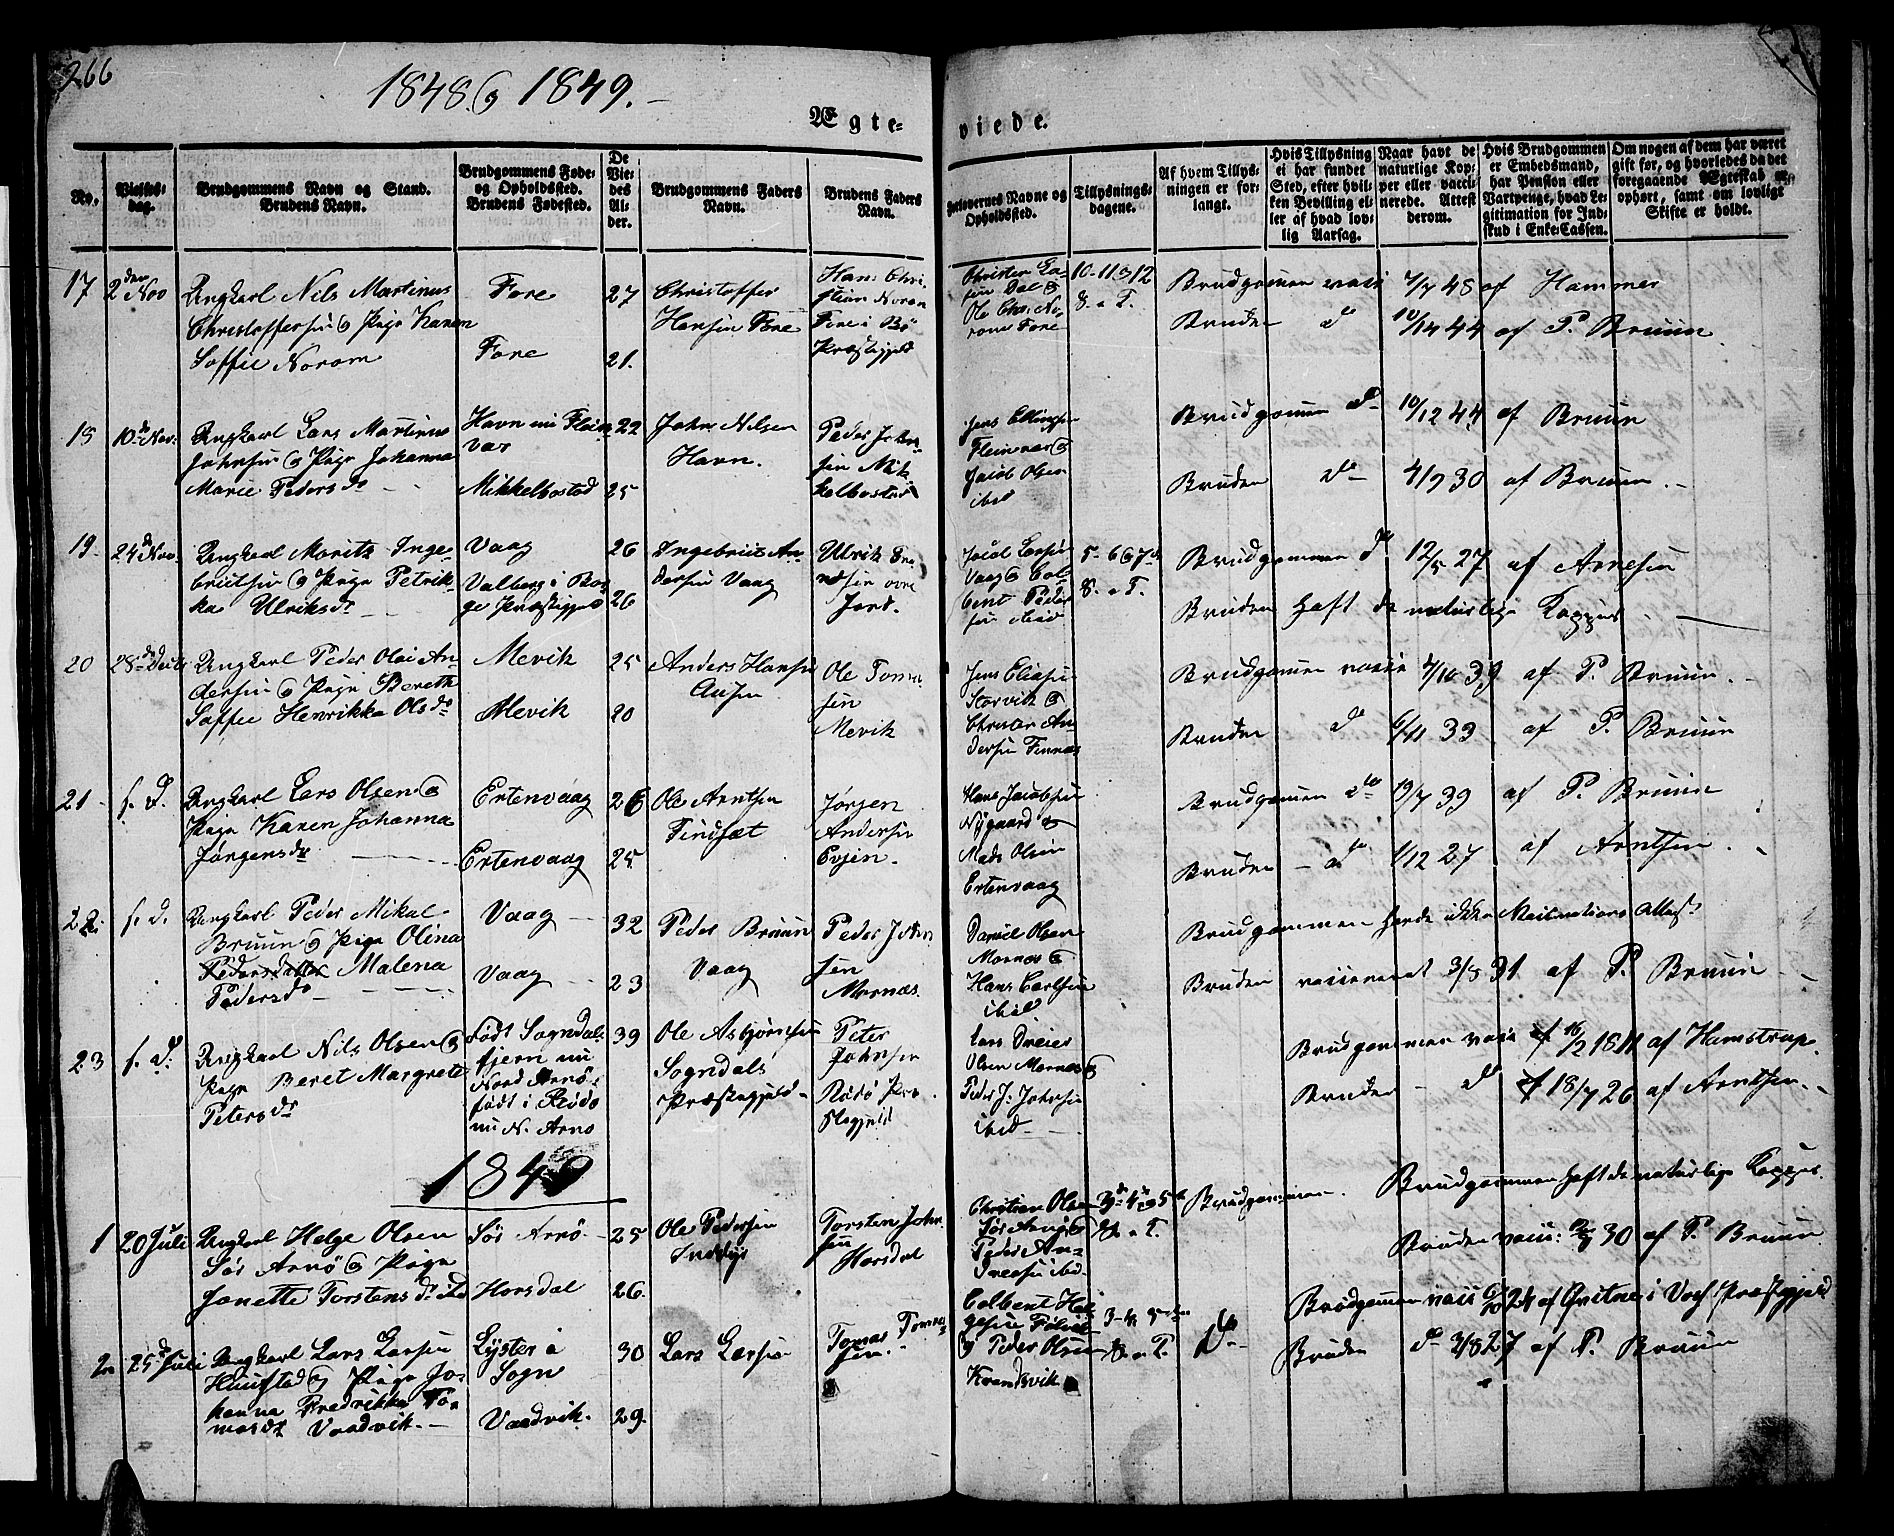 266
1848 & 1849.
Ægte-
viede.
No.
Vielses-
dag.
Brudgommens Navn og Stand.
Brudens Navn.
Brudgommens Føde-
og Opholdssted.
Brudens Fødested.
De
Vie-
des
Al-
der.
Brudgommens Faders
Navn.
Brudens Faders
Navn.
Forlovernes Navne og
Opholdssted.
Tillysnings-
dagene.
Af hvem Tillys-
ningen er for-
langt.
Hvis Tillysning
ei har fundet
Sted, efter hvil-
ken Bevilling el-
ler af hvad lov-
lig Aarsag.
Naar havt de
naturlige Kop-
per eller vacci-
nerede. Attest
derom.
Hvis Brudgommen
er Embedsmand,
har Pension eller
Vartpenge, hvad Le-
gitimation for Ind-
skud i Enke-Cassen.
Om nogen af dem har været
gift før, og hvorledes da det
foregaaende Ægteskab er
ophørt, samt om lovligt
Skifte er holdt.
17
2den Nov
Ungkarl Nils Martinus
Christoffersen & Pige Karen
Soffie Norom
Fore
Fore
27
21.
Christoffer
Hansen Fore
Hans Chri-
stian Norom
Fore i Bö
Præstegjeld
Christen La-
sen Dal &
Ole Chr. No-
rom Fore
10-11&12
S. e T.
Brudgommen vacc 4/7 48 af Hammer
Bruden do 10/14 44 af P. Bruun
18
10de Nov.
Ungkarl Lars Martinus
Johnsen & Pige Johanna
Marie Pedersdr
Havn nu Flein
vær
Mikkelbostad
22
25
John Nilsen
Havn.
Peder John-
sen Mik
kelbostad
Jens Ellingsen
Fleinvær &
Jacob Olsen
ibid
Brudgommen do 10/12 44 af Bruun
Bruden do 4/9 30 af Bruun.
19
24de Nov.
Ungkarl Moritz Inge-
britsen & Pige Petrik-
ka Ulriksdr
Vaag
Valberg i Bor-
ge Præstegjeld
26
26
Ingebrict An-
dersen Vaag
Ulrik
Jord.
Jacob Larsen
Vaag & Col-
bent Peder
sen ibid
5-6&7de
S. e T.
Brudgommen do 12/5 27 af Arnesen
Bruden haft de naturlige Kopper
20
28de Decbr
Ungkarl Peder Olai An-
dersen & Pige Bereth
Soffie Henrikka Olsdr
Mevik
Mevik
25
20
Anders Hansen
Ole Toma-
sen
Mevik
Jens Eliasen
Storvik &
Christen An-
dersen Finnæs
Brudgommen vacci 4/10 39 af P. Bruun.
Bruden do 6/11 33 af P. Bruun
21
s. D.
Ungkarl Lars Olsen &
Pige Karen Johanna
Jørgensdr
Ertenvaag
Ertenvaag
26
25
Ole Arntsen
Findset
Jørgen
Andersen
Evjen.
Hans Jacobsen
Nygaard &
Mads Olsen
Ertenvaag
Brudgommen do 19/7 39 af P. Bruun
Bruden do 4/12 27 af Arntsen.
22.
s. d.
Ungkarl Peder Mikal
Bruun & Pige Olina
Pedersdatter Malena
Pedersdr
Vaag
Vaag
32
23
Peder Bruun
Vaag
Peder John
sen
Mornæs
Daniel Olsen
Mornæs &
Hans Carlsen
ibid
Brudgommen havde ikke Vaccinations Attest
Bruden vaccineret 3/8 31 af P. Bruun
23
s. d.
Ungkarl Nils Olsen &
Pige Beret Margrete
Petersdr
Født Sogndals-
fjern nu
Nord Arnö
født i Rødö
nu N. Arnö
39
Ole Asbjörnsen
Sogndals
Præstegjeld
Peter
Johnsen
Rødö Præ
stegjeld
Lars Dreier
Olsen Mornæs &
Peder J. Johnsen
ibid
Brudgommen vacc 16/2 1811 af Hamstrup.
Bruden do 18/7 26 af Arntsen
1849
1
20 Juli
Ungkarl Helge Olsen
Sör Arnö & Pige
Janette Torstensdr ibd
Sör Arnö
Horsdal
25
26.
Ole Pedersen
Torsten John
sen
Horsdal
Christian Olsen
Sör Arnö &
Peder An-
dreasen ibd.
3de 4de & 5te
S. e T.
Brudgommen.
Brudgommen haft de naturlige Kopper.
Bruden vacc: 30 af P. Bruun
2
25de Juli
Ungkarl Lars Larsen
Huustad & Pige Jo-
hanna Fredrikka To-
masdr Vaadvik.
Lyster i
Sogn
Vaadvik.
30
29.
Lars Larsen
Tomas Tomas-
sen.
Colbent Hel-
gesen
& Peder Olsen
Krendsvik
3-4& 5te
S. e T.
do
Brudgommen vacc 24 af Qvitne i Vos Præstegjeld
Bruden do 3/8 27 af P. Bruun